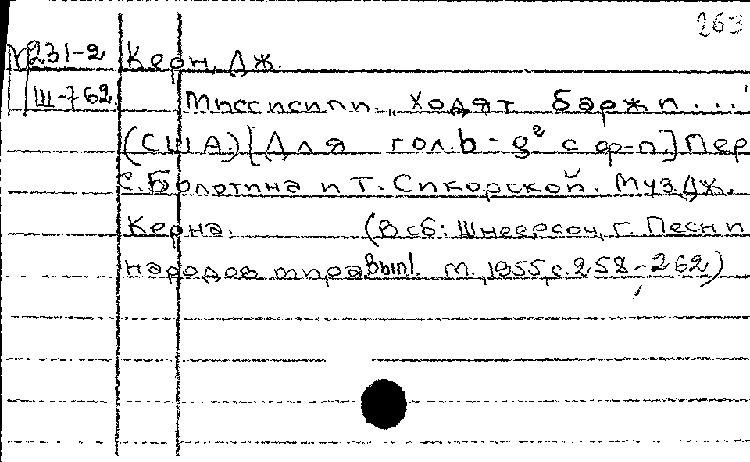 263
М231-2 Керн, Дж.
Ш-762 Миссисипи „Ходят баржи..."
(США) [Для гол. b-g² с ф-п.] Пер
С. Болотина и Т. Сикорской. Муз. Дж.
Керна. (В сб: Шнеерсон, Г. Песни
народов мира Вып1. М., 1955, с. 258-262)